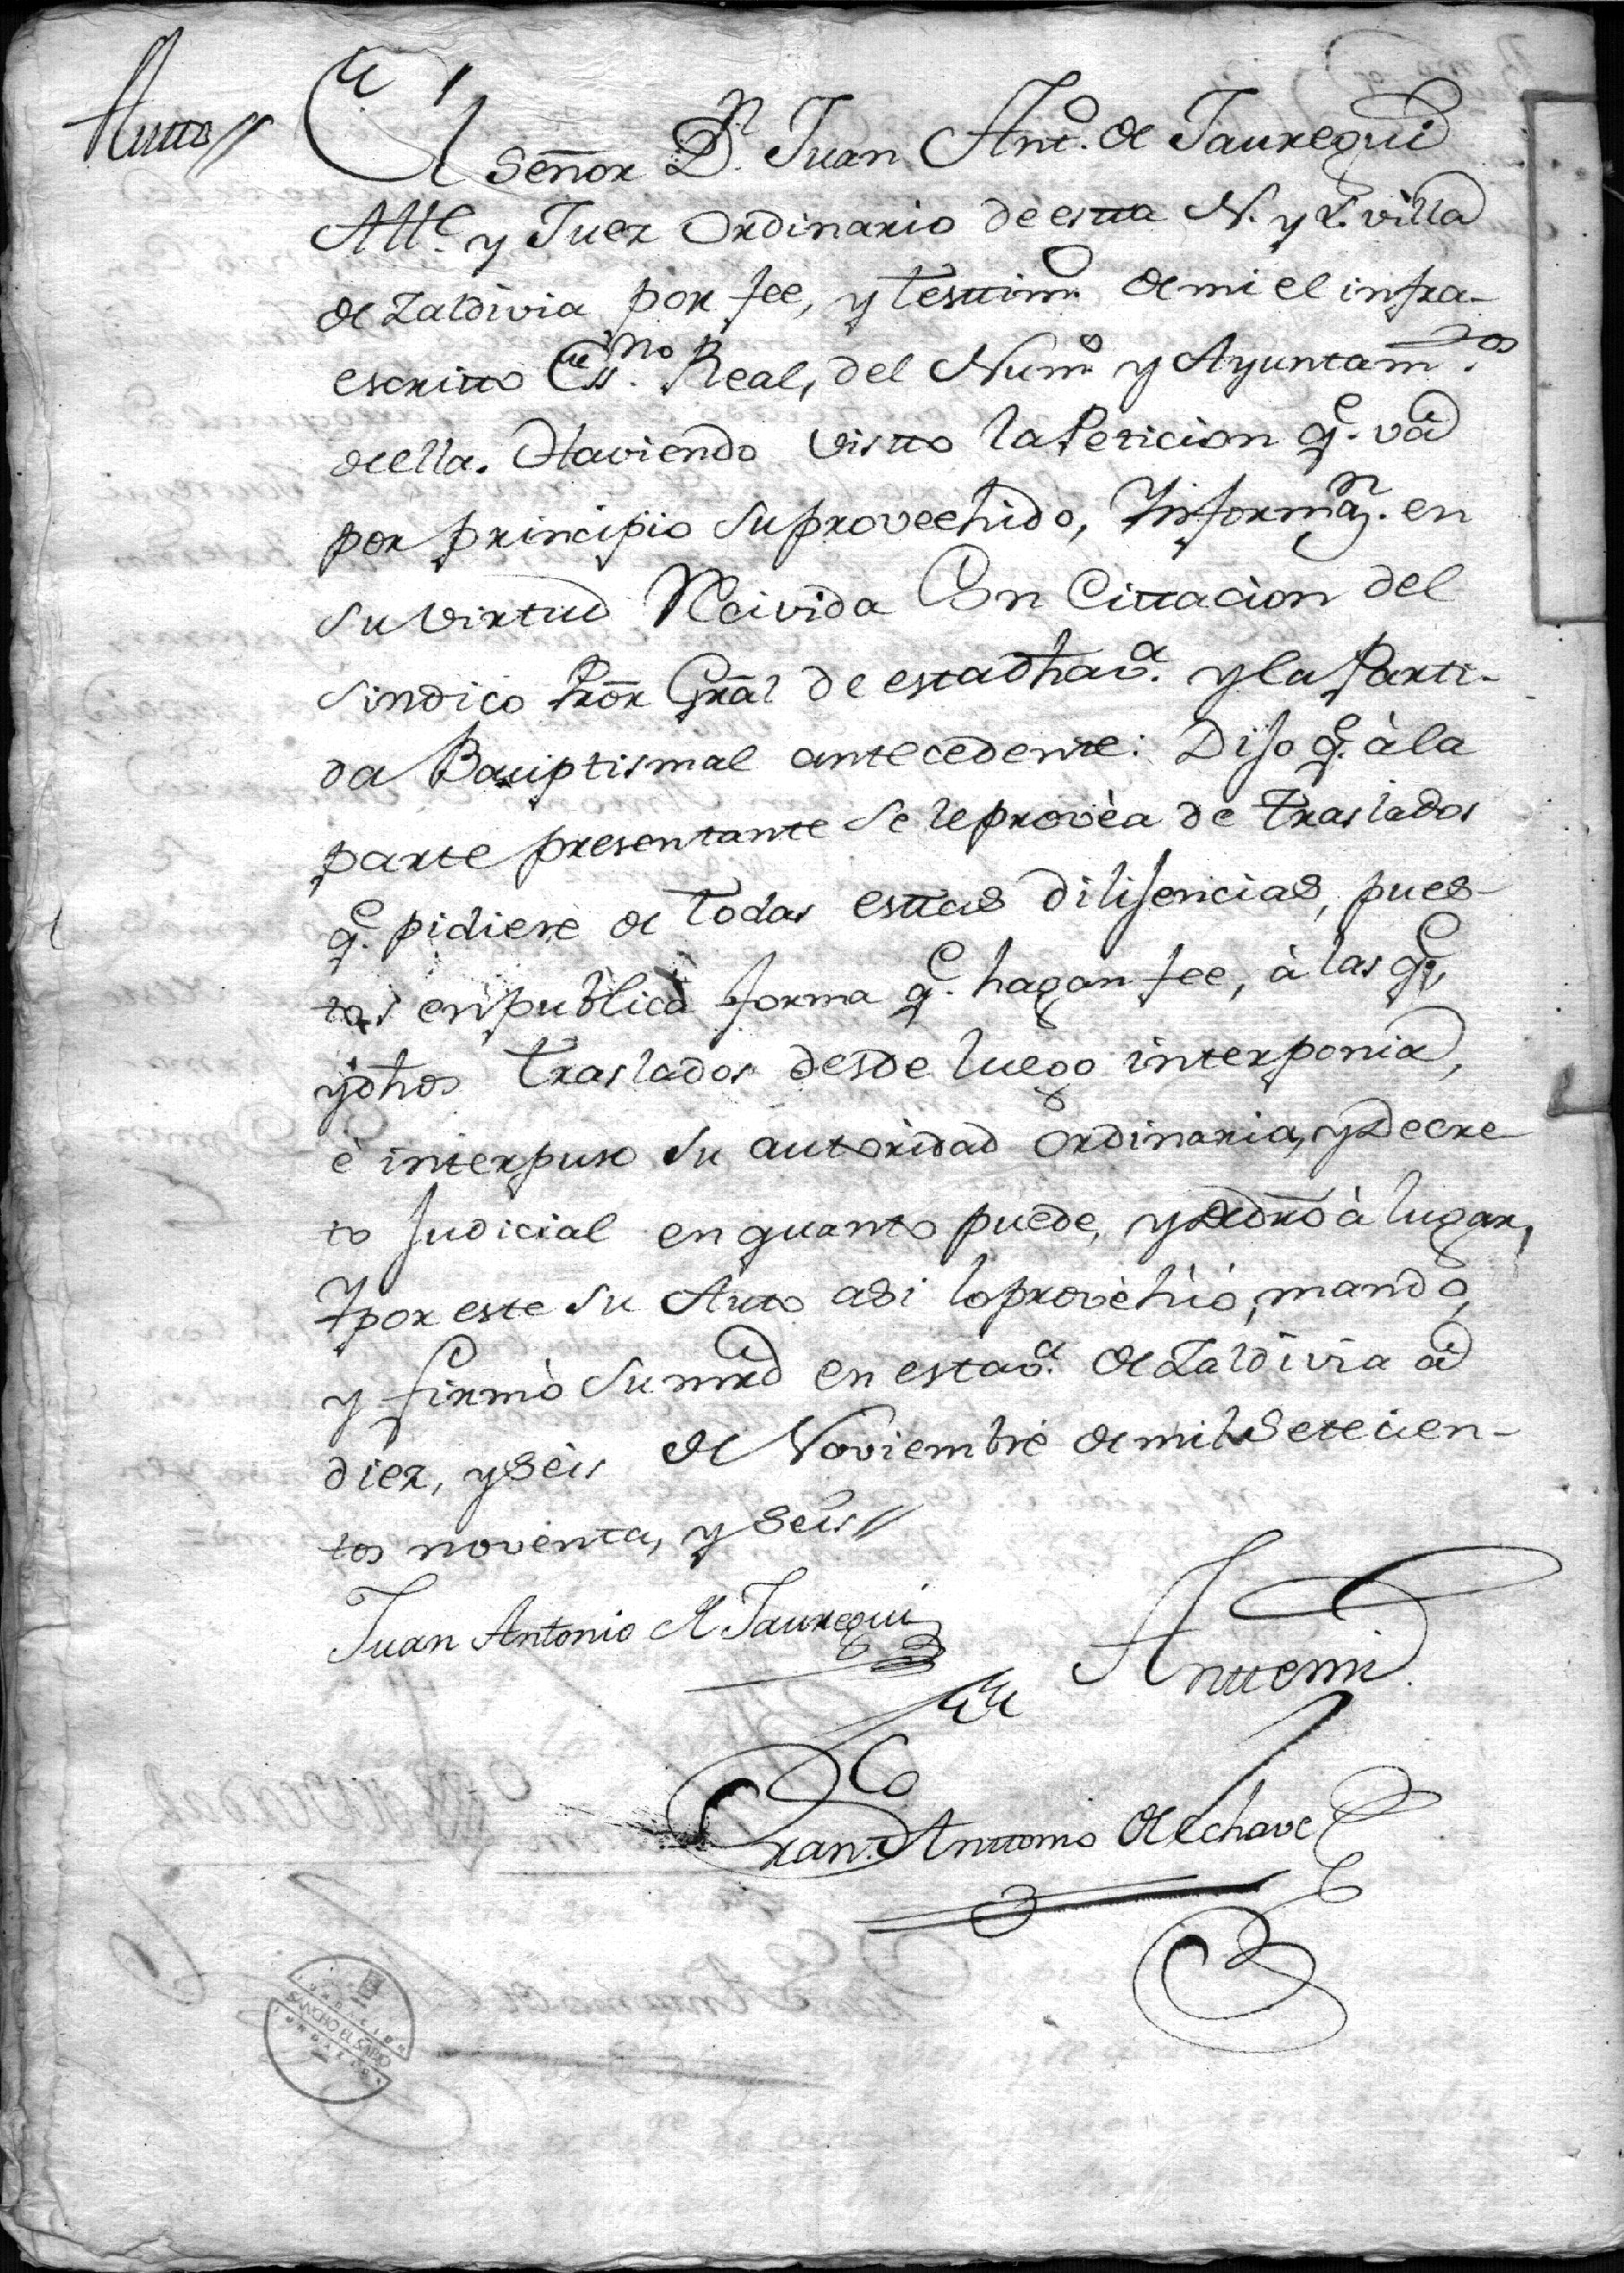 Autto//
El Señor Dn. Juan Anto. de Jauregui
Alle. y Juez Ordinario de estta N. y L. villa
de Zaldivia por fee, y testtimo. de mi el infra-
escritto Essno. Real, del Numo. y Ayuntamtos.
de ella. Haviendo visto la Peticion qe. va
por principio su provehido, Informan. en
su virtud Recivida Con Cittacion del
sindico Pror̄ Grāl de esta dha va. y la Parti-
da Bauptismal antecedente: Dijo qe. à la
parte presentante se le provèa de traslados
qe. pidiere de todas esttas dilijencias, pues-
tas en publica forma qe. hagan fee, à las qe.,
y dhos traslados desde luego interponia,
è interpuso su autoridad ordinaria, y Decre
to Judicial en quanto puede, y de dro à lugar,
Y por este su Auto asi lo provehiò, mandò,
y firmò su mrd en esta va. de Zaldivia a
diez, y seis de Noviembre de mil Setecien-
tos noventa, y seis//
Juan Antonio de Jauregui
Anttemi
Franco. Anttonio de Echave
SANCHO EL SABIO